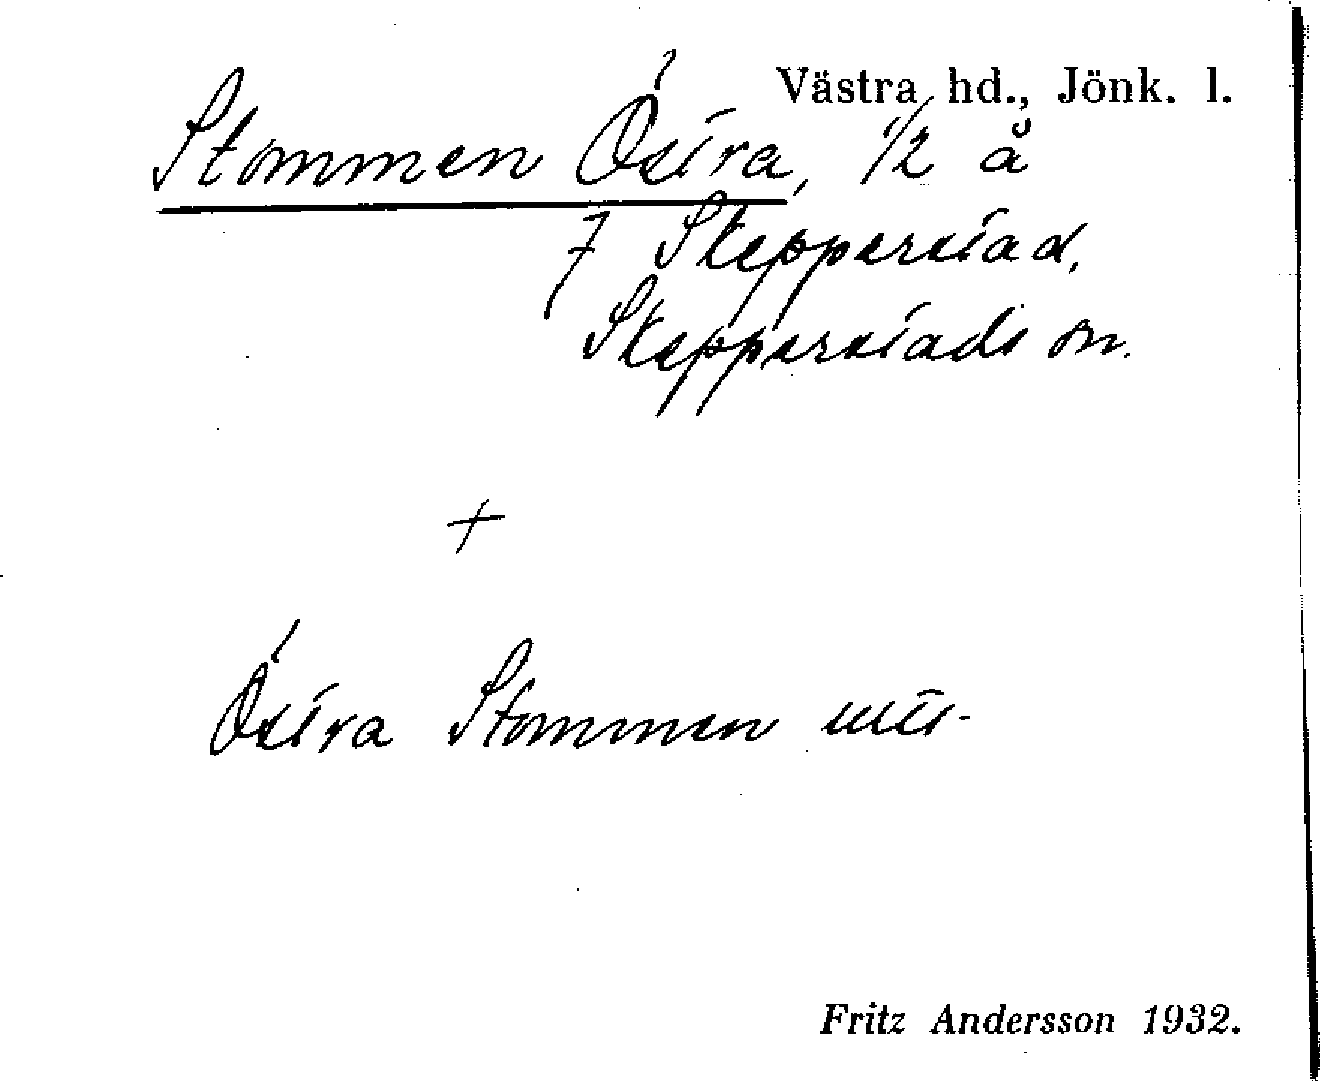 Västra hd., Jönk. l.
Stommen Östra, 1/2 å
7 Skepperstad,
Skepperstads sn.
+
Östra Stommen
Fritz Andersson 1932.